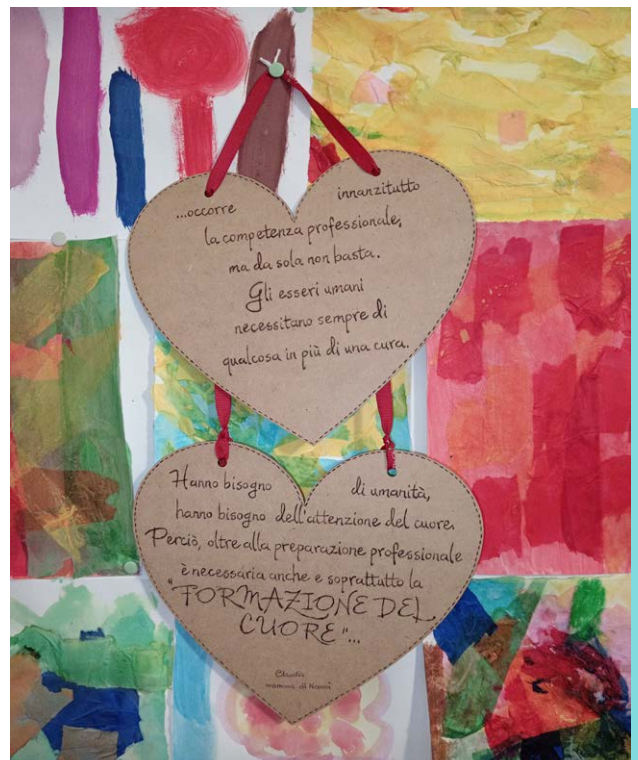 ...occorre innanzitutto
la competenza professionale,
ma da sola non basta.
Gli esseri umani
necessitano sempre di
qualcosa in più di una cura.
Hanno bisogno di umanità,
hanno bisogno dell'attenzione del cuore.
Perciò, oltre alla preparazione professionale
è necessaria anche e soprattutto la
"FORMAZIONE DEL
CUORE"...
Claudia
mamma di